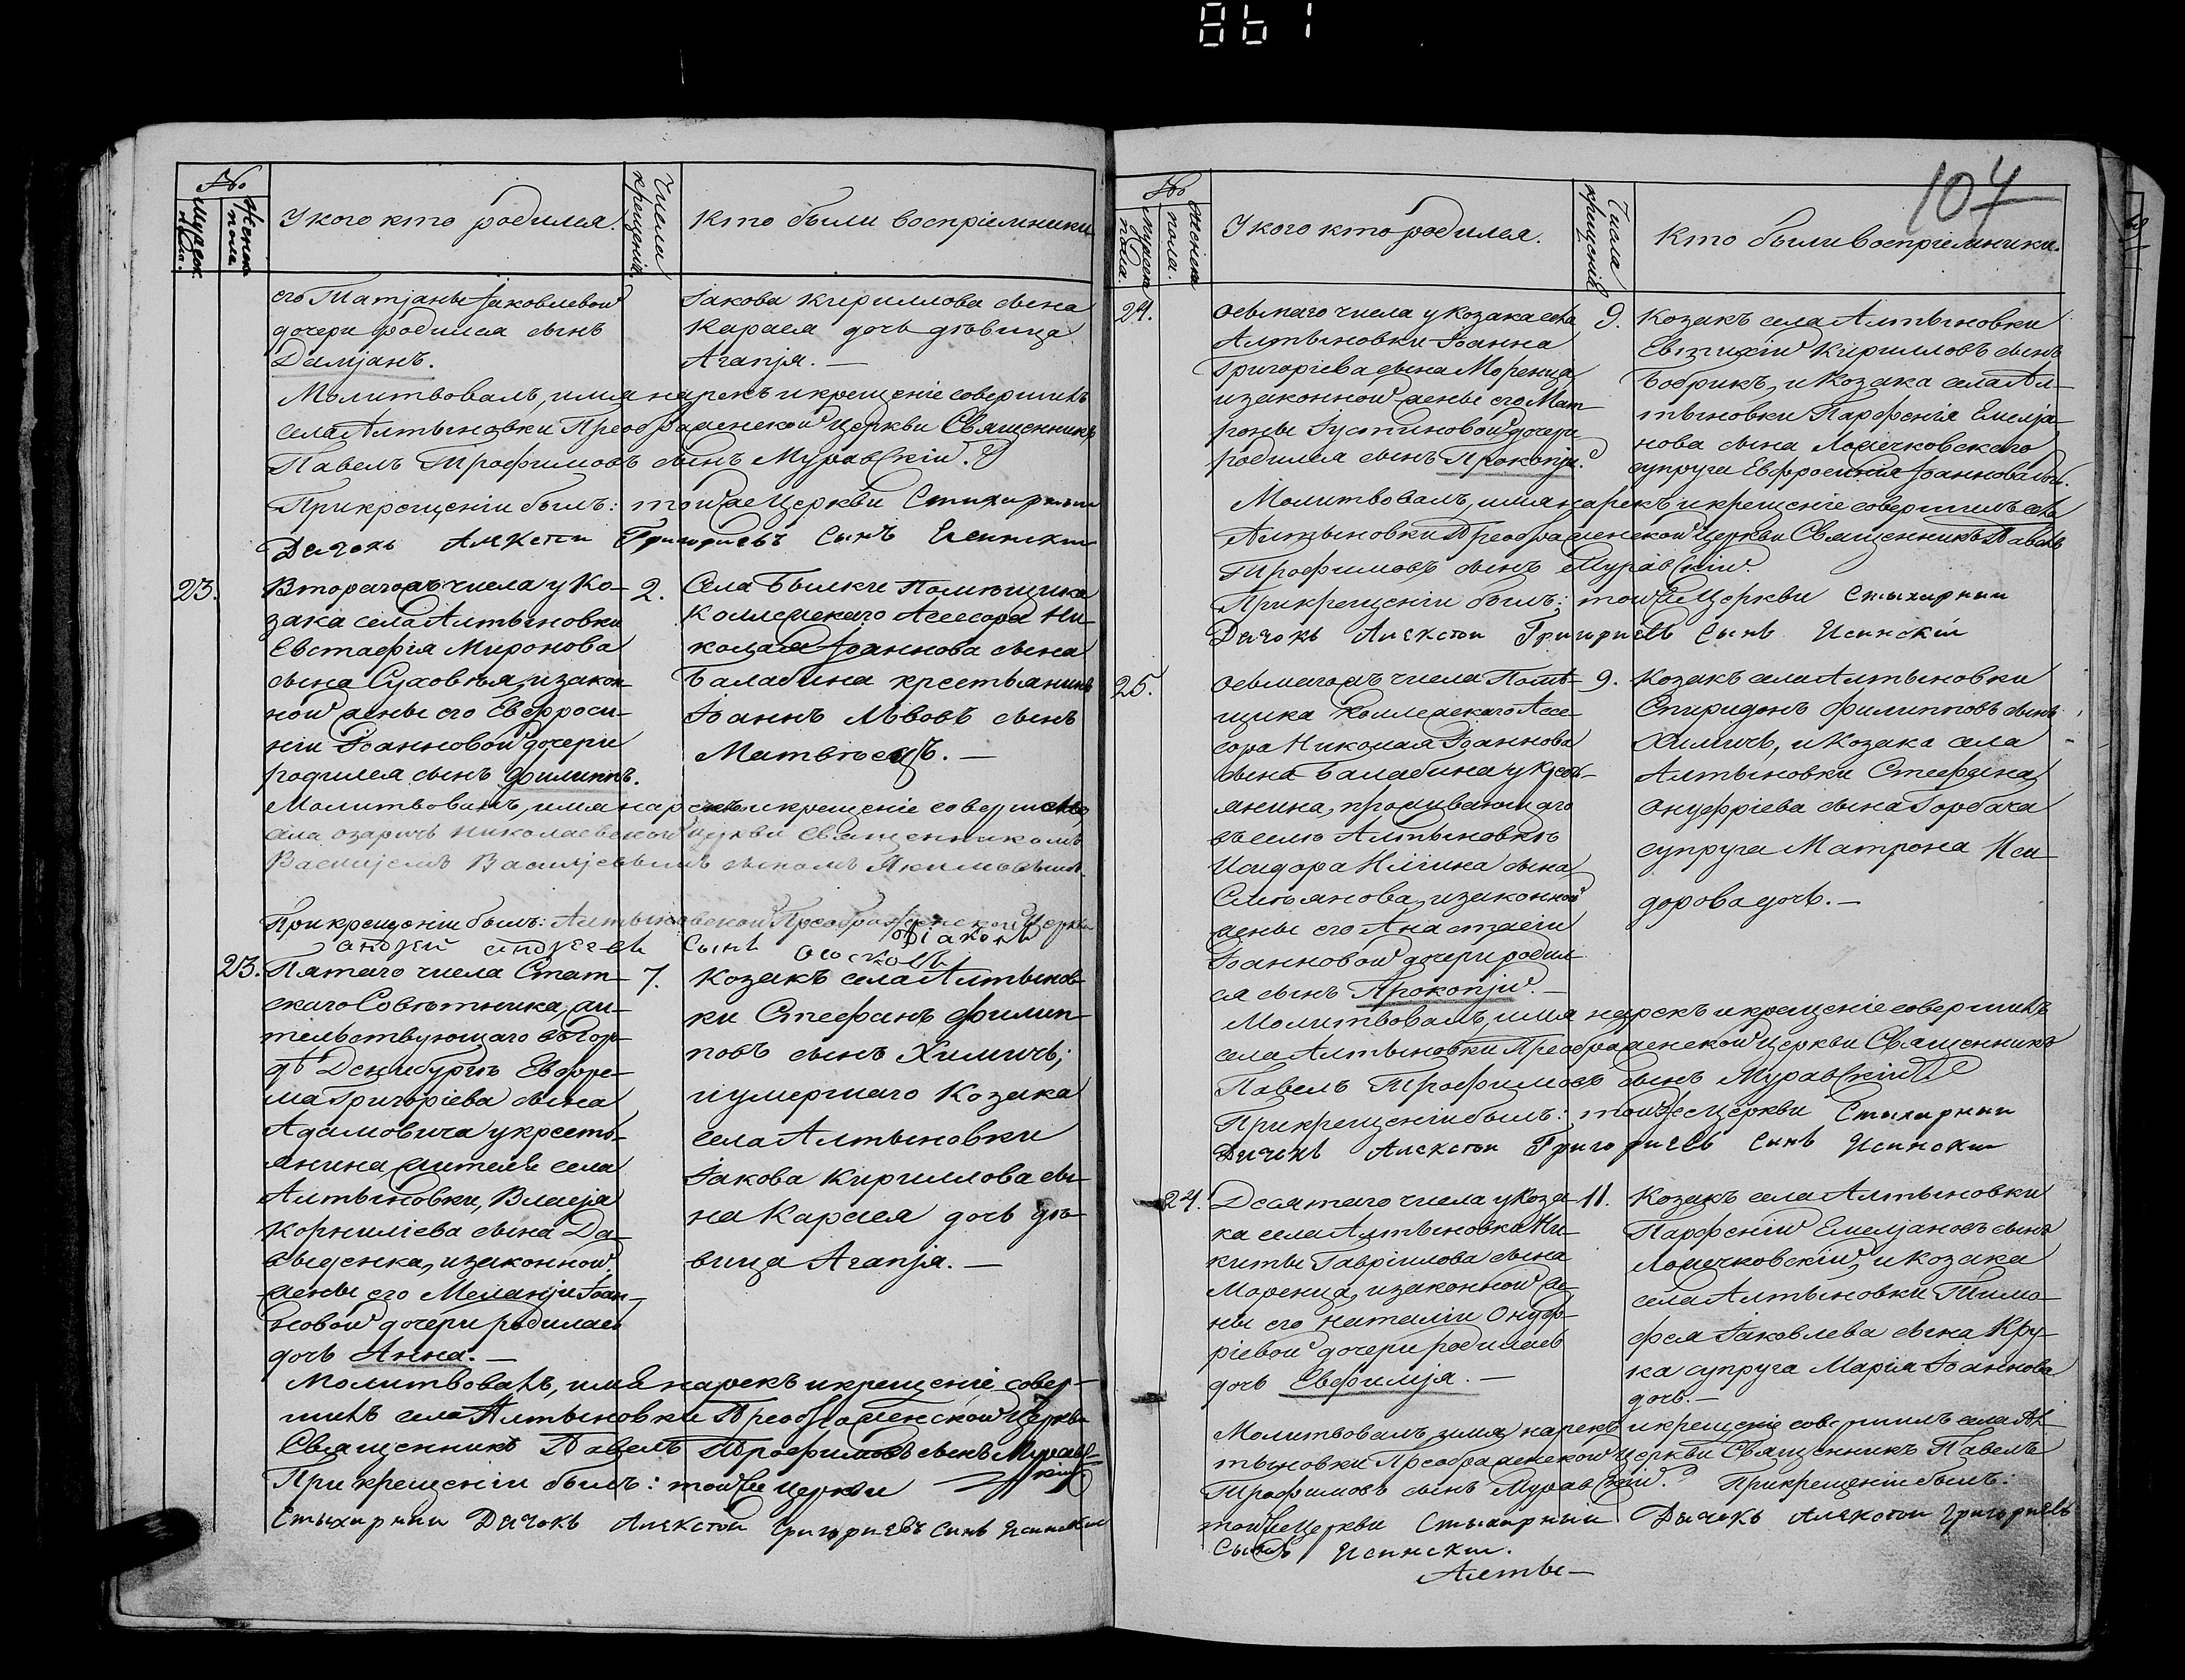 1981
№
Мужск. пола.
Женск. пола.
У кого кто родился.
Числа крещенія.
Кто были воспріемники
его Татіаны Іаковлевой
дочери родился сынъ
Даміанъ.
Іакова Кириллова сына
Карася дочь дѣвица
Агапія. —
Молитвовалъ, имя нарекъ и крещеніе совершилъ
села Алтыновки Преображенской Церкви Священникъ
Павелъ Трофимовъ сынъ Муравскій.
При крещеніи былъ: той же Церкви Стихарный
Дячокъ Алексѣй Григориевъ Сынъ Исинскій
23.
Втораго числа у Ко-
зака села Алтыновки
Евстафія Миронова
сына Суховѣя, и закон
ной жены его Евфроси-
ніи Іоанновой дочери
родился сынъ Филиппъ.
2.
Села Былки Помѣщика
Коллежскаго Асессора Ни-
колая Іоаннова сына
Балабина крестьянинъ
Іоаннъ Львовъ сынъ
Матвѣецъ. —
Молитвовалъ, имя нарекъ и крещеніе совершено
села Озаричъ Николаевской церкви Священникомъ
Василіемъ Василіевымъ сыномъ Якимовымъ.
При крещеніи былъ: Алтыновской Преображенской Церкви
Діаконъ
Андрей Андреевъ Сынъ
23.
Пятаго числа Стат-
скаго Совѣтника, жи-
тельствующаго въ Горо-
дѣ Евфре-
ма Григоріева сына
Адамовича у кресть-
янина жителя села
Алтыновки, Власія
Корниліева сына Да-
выденка, и законной
жены его Меланіи Іоан-
новой дочери родилась
дочь Анна. —
7.
Козакъ села Алтынов
ки Стефанъ Филип-
повъ сынъ Химичъ;
и умершаго Козака
села Алтыновки
Іакова Кириллова сы-
на Карася дочь дѣ-
вица Агапія. —
Молитвовалъ, имя нарекъ и крещеніе совер-
шилъ села Алтыновки Преображенской Церкви
Священникъ Павелъ Трофимовъ сынъ Мурав-
скій
При крещеніи былъ: той же Церкви
Стыхирный Дячокъ Алексѣй Григориевъ Сынъ Исинскій
104
№
Мужеска пола.
Женска пола.
У кого кто родился.
Числа крещенія
Кто были воспріемники.
24.
Осьмаго числа у Козака села
Алтыновки Іоанна
Григоріева сына Моренца
и законной жены его Мат
роны Іустиновой дочери
родился сынъ Прокопій.
9.
Козакъ села Алтыновки
Евтихій Кирилловъ сынъ
Бобрикъ, и Козака села Ал-
тыновки Парфенія Емеліа
нова сына Ломечковскаго
супруга Евфросинія Іоаннова
Молитвовалъ, имя нарекъ и крещеніе совершилъ села
Алтыновки Преображенской Церкви Священникъ Павелъ
Трофимовъ сынъ Муравскій
При крещеніи былъ: той же Церкви Стыхирный
Дячокъ Алексѣй Григориевъ Сынъ Исинскій
25.
Осьмаго числа Помѣ-
щика Коллежскаго Асе-
сора Николая Іоаннова
сына Балабина у крест-
янина, проживающаго
въ селѣ Алтыновкѣ
Исидора Иліина сына
Смѣянова, и законной
жены его Анастасіи
Іоанновой дочери родил
ся сынъ Прокопій. —
9.
Козакъ села Алтыновки
Спиридонъ Филипповъ сынъ
Химичъ, и Козака села
Алтыновки Стефана
Онуфріева сына Горбача
супруга Матрона Иси
дорова дочь. —
Молитвовалъ, имя нарекъ и крещеніе совершилъ
села Алтыновки Преображенской Церкви Священникъ
Павелъ Трофимовъ сынъ Муравскій
При крещеніи былъ: той же Церкви Стыхирный
Дячокъ Алексѣй Григориевъ Сынъ Исинскій
24.
Десятаго числа у Коза-
ка села Алтыновки Ни-
киты Гавріилова сына
Моренца, и законной же-
ны его Наталіи Онуф-
ріевой дочери родилась
дочь Евфимія. —
11.
Козакъ села Алтыновки
Парфеній Емеліановъ сынъ
Ломечковскій, и Козака
села Алтыновки Тимо-
фея Іаковлева сына Кру-
ка супруга Марія Іоаннова
дочь. —
Молитвовалъ, имя нарекъ и крещеніе совершилъ села Ал-
тыновки Преображенской Церкви Священникъ Павелъ
Трофимовъ сынъ Муравскій. При крещеніи былъ:
той же Церкви Стыхирный Дячокъ Алексѣй Григориевъ
Сынъ Исинскій.
Алты-